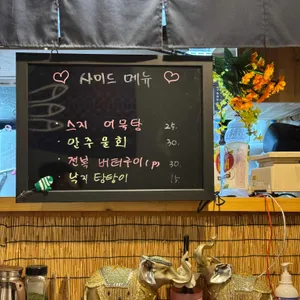 ♡ 사이드 메뉴 ♡
· 스지 어묵탕 25.
· 안주 물회 30.
· 전복 버터구이(1p) 30.
· 낙지 탕탕이 15.